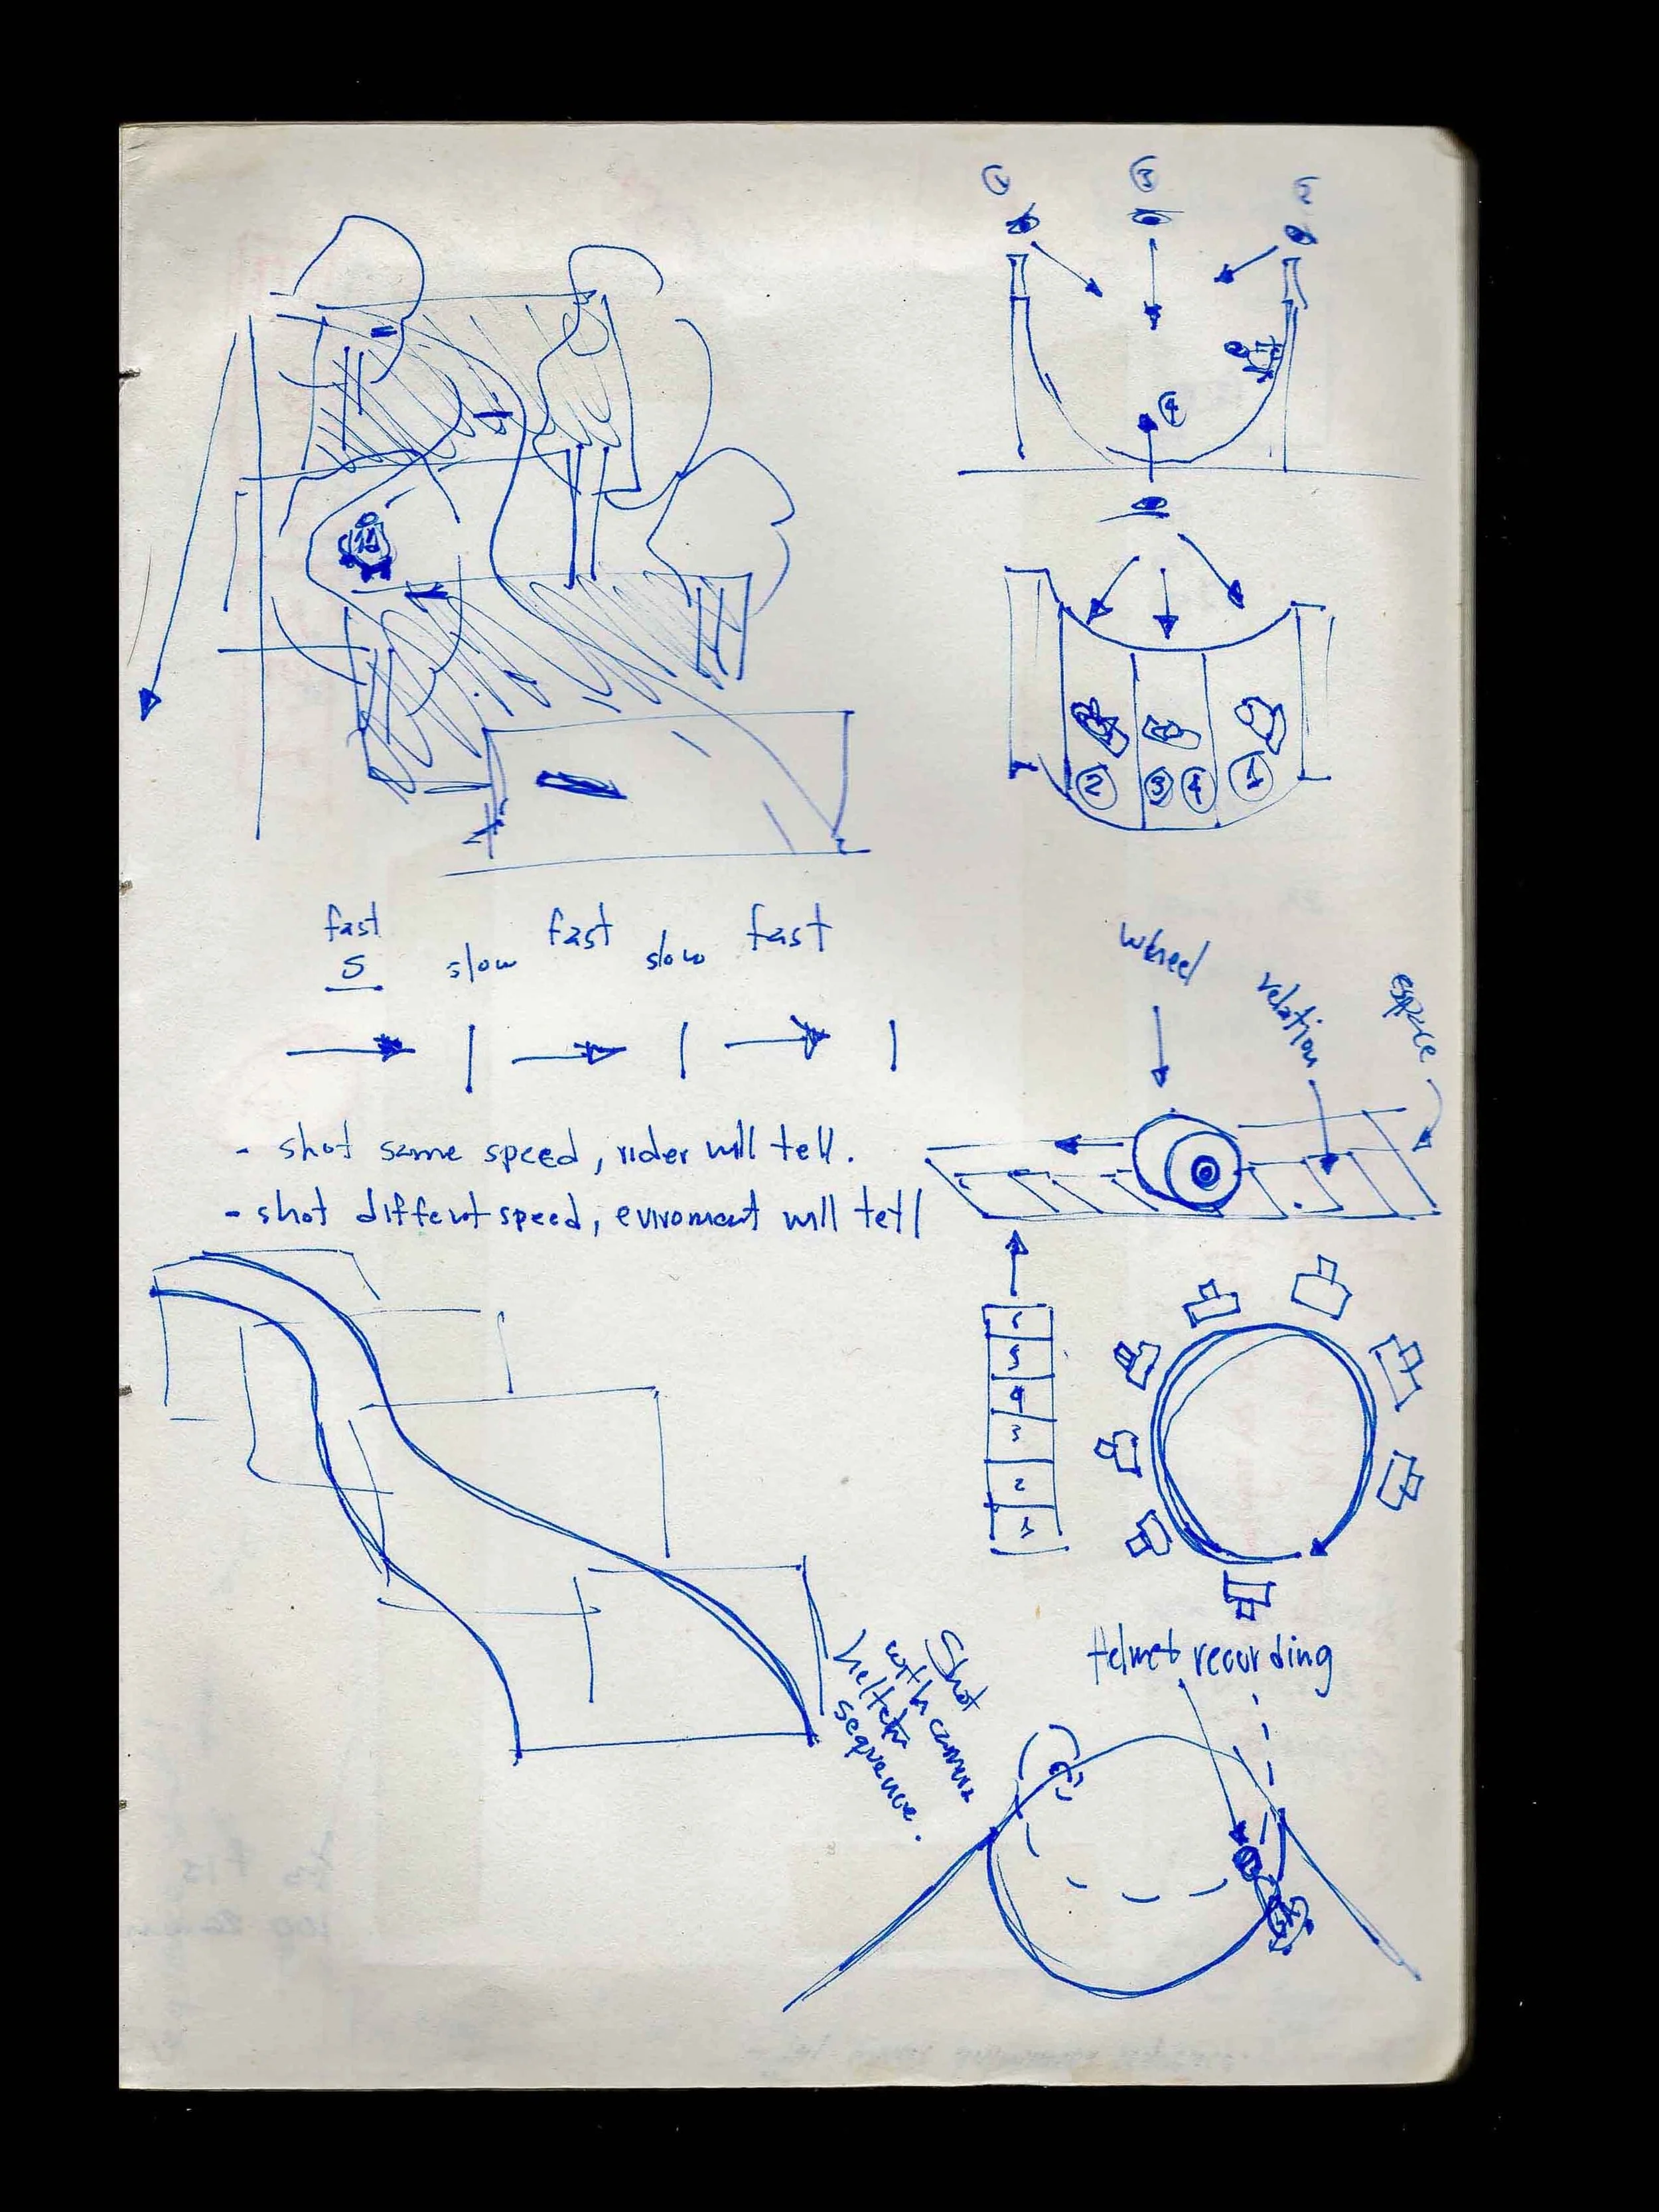 1
3
2
4
2
3
4
1
fast
S
slow
fast
slow
fast
wheel
relation
espace
- shot same speed, rider will tell.
- shot different speed, eviroment will tell
6
5
4
3
2
1
Helmet recording
Shot
with camera
sequence.